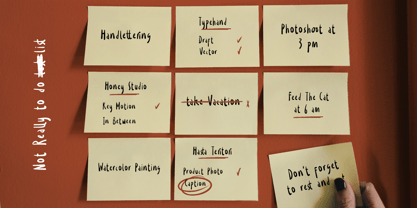 Not Really to do list
Handlettering
Typehand
Draft
Vector
Photoshoot at
3 pm
Honey Studio
Key Motion
In Between
take Vacation
Feed The Cat
at 6 am
Watercolor Painting
Hasta Tenton
Product Photo
Caption
Don't forget
to rest and